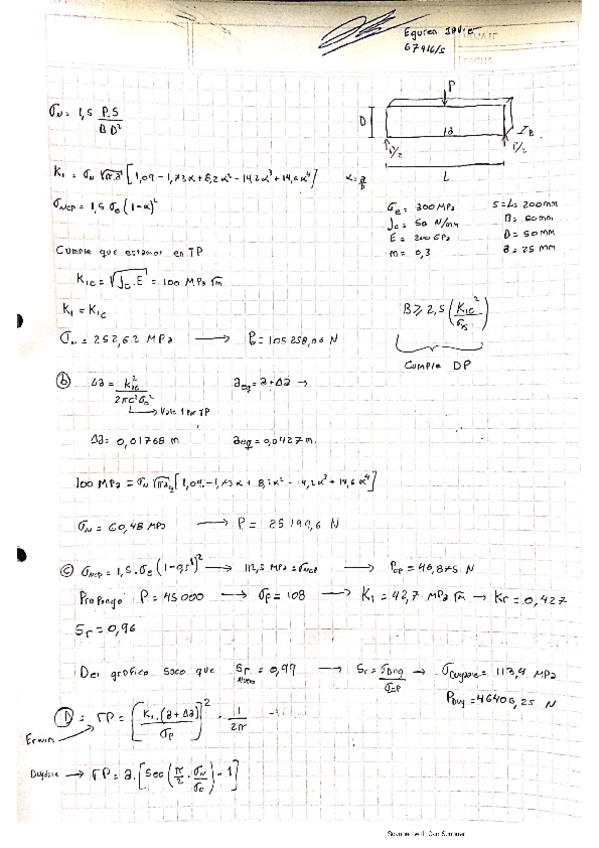 Eguren Javier
67916/5
σN = 1,5 P.S / B D²
P
D
a
B
P/2
P/2
L
K1 = σN √π.a [1,09 - 1,73α + 8,2α² - 14,2α³ + 14,6α⁴]
α = a/D
σNCP = 1,5 σe (1-α)²
σe = 300 MPa
S = L = 200mm
Jc = 50 N/mm
B = 60mm
E = 200 GPa
D = 50mm
m = 0,3
a = 25 mm
Cumple que estamos en TP
K1C = √Jc.E = 100 MPa √m
K1 = K1C
B ≥ 2,5 (K1C / σys)²
σN = 252,62 MPa → P = 105258,04 N
Cumple DP
(b) Δa = K1C² / 2πC²σe²
aeq = a + Δa →
Vale 1 por TP
Δa = 0,01768 m
aeq = 0,0427 m.
100 MPa = σN √πaeq [1,09 - 1,73α + 8,2α² - 14,2α³ + 14,6α⁴]
σN = 60,48 MPa → P = 25199,6 N
(c) σNCP = 1,5.σe (1-0,5)² → 112,5 MPa = σNCP → PCP = 46,875 N
Propongo P = 45000 → σP = 108 → K1 = 42,7 MPa √m → Kr = 0,427
Sr = 0,96
Del grafico saco que Sr = 0,99 → Sr = → σDugdale = 113,4 MPa
PDug = 46406,25 N
= rP = [K1.(a+Δa) / σP]² . 1/2π
Erwin
Dugdale → rP = a.[Sec(π/2 . σN/σe) - 1]